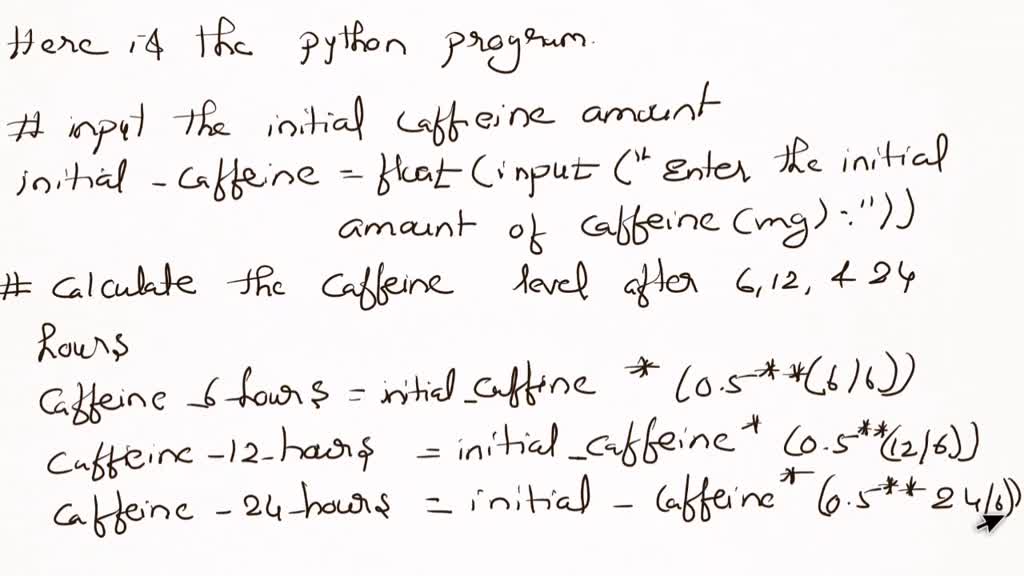 Here is the python program.
# input the initial caffeine amount
initial - caffeine = float (input ("Enter the initial
amount of caffeine (mg) : "))
# calculate the caffeine level after 6, 12, & 24
hours
caffeine _6 hours = initial_caffine * (0.5**(6/6))
caffeine -12-hours = initial_caffeine * (0.5**(12/6))
caffeine - 24-hours = initial - caffeine * (0.5** 24/6))